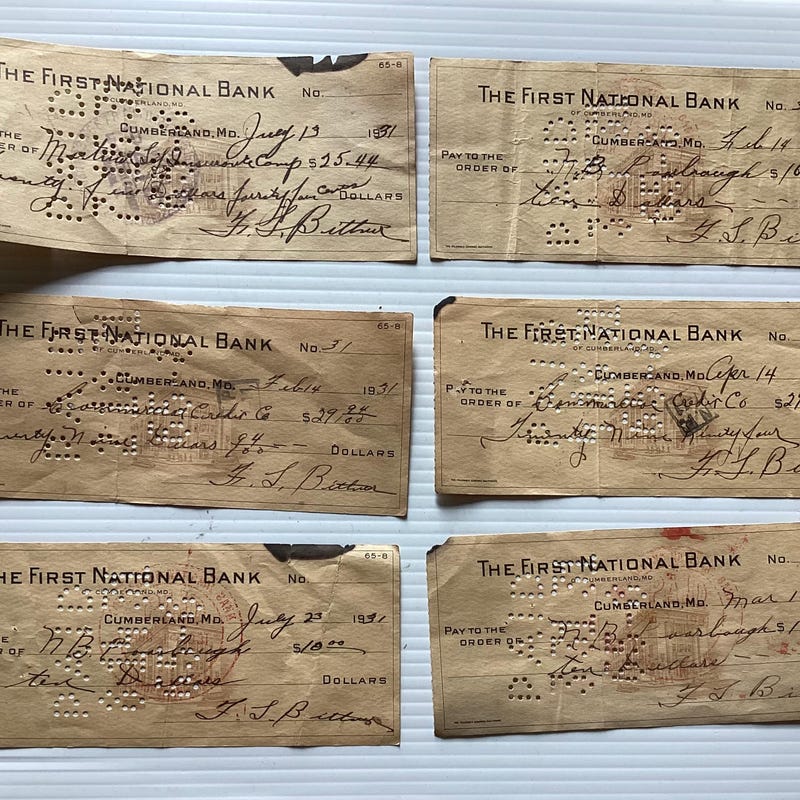 THE FIRST NATIONAL BANK No. 65-8
OF CUMBERLAND, MD.
CUMBERLAND, MD. July 13 1931
THE
ER OF Mutual Insurance Comp $25.44
DOLLARS
F. L. Bittner
THE FIRST NATIONAL BANK No.
OF CUMBERLAND, MD.
CUMBERLAND, MD. Feb 14
PAY TO THE
ORDER OF N. B. $10
ten Dollars
F. L. Bi
THE FIRST NATIONAL BANK No. 31 65-8
OF CUMBERLAND, MD.
CUMBERLAND, MD. Feb 14 1931
THE
ER OF Commercial Credit Co $29 94/100
Nine Dollars 94/100 DOLLARS
F. L. Bittner
THE FIRST NATIONAL BANK
OF CUMBERLAND, MD.
CUMBERLAND, MD. Apr 14
PAY TO THE
ORDER OF Commercial Credit Co $29
Twenty Nine Ninety four
F. L. Bi
HE FIRST NATIONAL BANK No. 65-8
OF CUMBERLAND, MD.
CUMBERLAND, MD. July 23 1931
HE
R OF N. B. $10 00
ten Dollars DOLLARS
F. L. Bittner
THE FIRST NATIONAL BANK No.
OF CUMBERLAND, MD
CUMBERLAND, MD. Mar 1
PAY TO THE
ORDER OF N. B. $1
ten Dollars
F. L. Bi